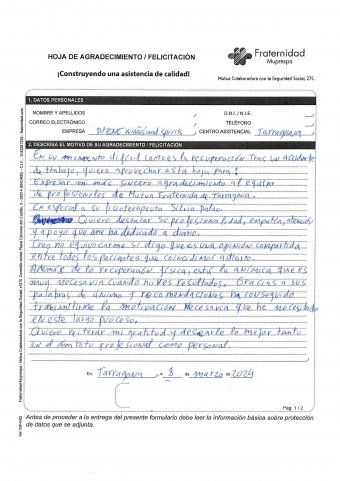 HOJA DE AGRADECIMIENTO / FELICITACIÓN
¡Construyendo una asistencia de calidad!
Fraternidad
Muprespa
Mutua Colaboradora con la Seguridad Social, 275
1. DATOS PERSONALES
NOMBRE Y APELLIDOS
D.N.I. / N.I.E.
CORREO ELECTRÓNICO
TELÉFONO
EMPRESA
wines and spirits
CENTRO ASISTENCIAL Tarragona
2. DESCRIBA EL MOTIVO DE SU AGRADECIMIENTO / FELICITACIÓN
En un momento difícil como es la recuperación tras un accidente
de trabajo, quiero aprovechar esta hoja para:
Expresar mi más sincero agradecimiento al equipo
de profesionales de Mutua Fraternidad de Tarragona.
En especial a su fisioterapeuta Silvia
Quiero destacar su profesionalidad, empatía, atención
y apoyo que me ha dedicado a diario.
Creo no equivocarme si digo que es una opinión compartida
entre todos los pacientes que coincidimos a diario.
Además de la recuperación física, está la anímica que es
muy necesaria cuando no ves resultados. Gracias a sus
palabras de ánimo y recomendaciones ha conseguido
transmitirme la motivación necesaria que he necesitado
en este largo proceso.
Quiero reiterar mi gratitud y desearle lo mejor tanto
en el ámbito profesional como personal.
En Tarragona, a 8 de marzo de 2024
Pág. 1 / 2
Antes de proceder a la entrega del presente formulario debe leer la información básica sobre protección
de datos que se adjunta.